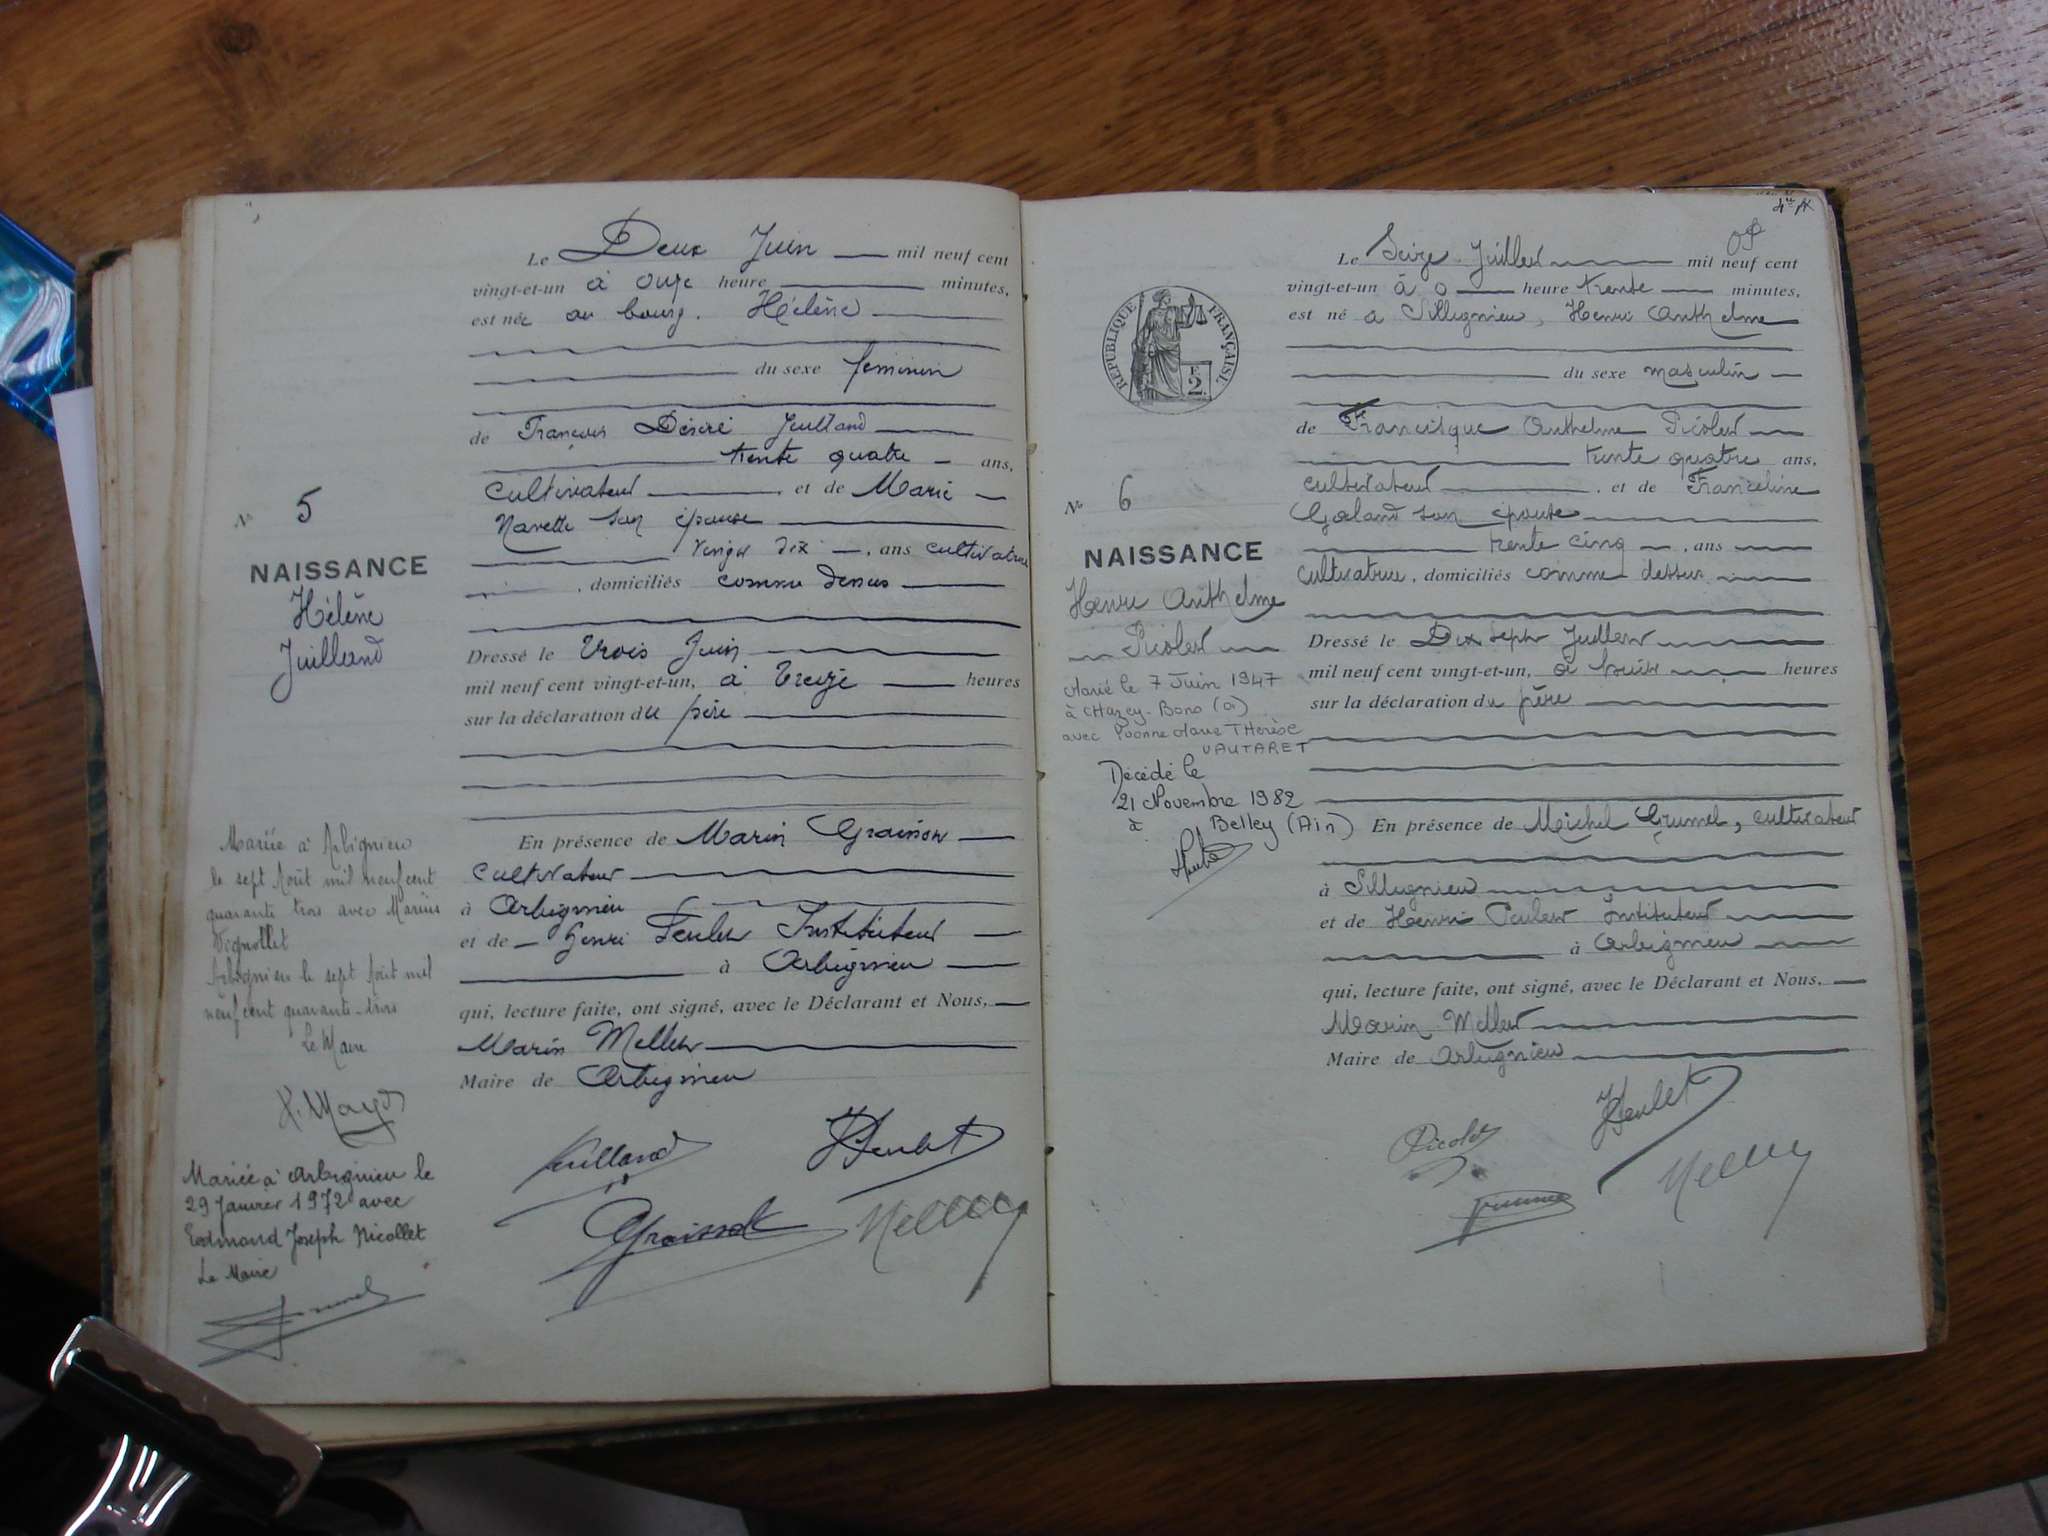 Le Deux Juin mil neuf cent
vingt-et-un à onze heure minutes,
est née au bourg. Hélène
du sexe féminin
de François Désiré Juilland
trente quatre ans,
cultivateur , et de Marie
Navette son épouse
vingt dix , ans cultivatrice
, domiciliés comme dessus
Dressé le trois Juin
mil neuf cent vingt-et-un, à treize heures
sur la déclaration du père
En présence de Marin Graisson
cultivateur
à Arbignieu
et de Henri Instituteur
à Arbignieu
qui, lecture faite, ont signé, avec le Déclarant et Nous,
Marin Mellet
Maire de Arbignieu
Juilland
Mellet
N° 5
NAISSANCE
Hélène
Juilland
Mariée à Arbignieu
le sept Août mil neuf cent
quarante trois avec Marius
Vignollet
Arbignieu le sept Août mil
neuf cent quarante-trois
Le Maire
Mariée à Arbignieu le
29 Janvier 1972 avec
Edmond Joseph Nicollet
Le Maire
Le Seize Juillet mil neuf cent
vingt-et-un à 0 heure trente minutes,
est né à Sillignieu, Henri Anthelme
du sexe masculin
de Francisque Anthelme Picolet
trente quatre ans,
cultivateur , et de Franceline
Galand son épouse
trente cinq , ans
cultivatrice, domiciliés comme dessus
Dressé le Dix sept Juillet
mil neuf cent vingt-et-un, à huit heures
sur la déclaration du père
En présence de Michel Grumel, cultivateur
à Sillignieu
et de Henri Instituteur
à Arbignieu
qui, lecture faite, ont signé, avec le Déclarant et Nous,
Marin Mellet
Maire de Arbignieu
Picolet
Mellet
RÉPUBLIQUE FRANÇAISE
F.
2.
N° 6
NAISSANCE
Henri Anthelme
Picolet
Marié le 7 Juin 1947
à CHazey-Bons (Oi)
avec Yvonne Marie THérèse
VAUTARET
Décédé le
21 Novembre 1982
à Belley (Ain)